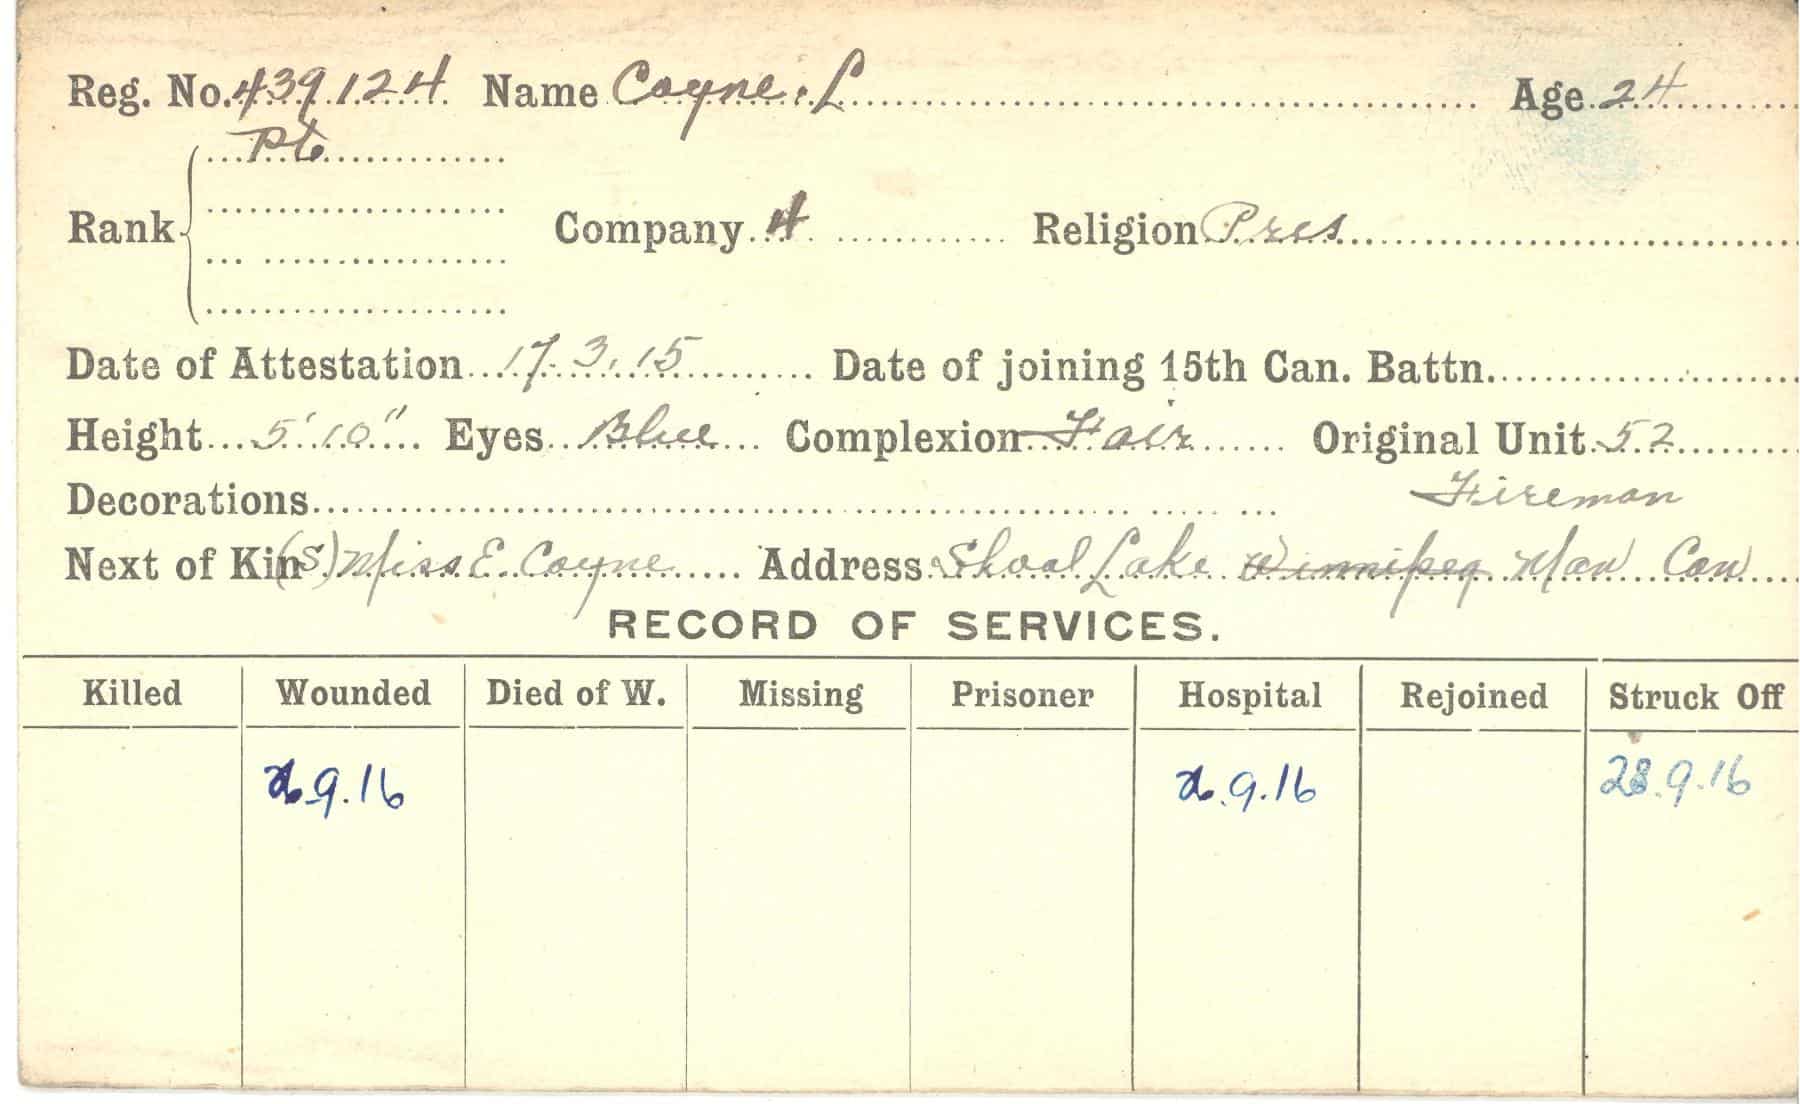 Reg. No. 439124 Name Coyne. L Age 24
Pte
Rank Company 4 Religion Pres
Date of Attestation 17.3.15 Date of joining 15th Can. Battn.
Height 5'10" Eyes Blue Complexion Fair Original Unit 52
Decorations Fireman
Next of Kin (S) Miss E. Coyne Address Shoal Lake Winnipeg Man Can
RECORD OF SERVICES.
Killed Wounded Died of W. Missing Prisoner Hospital Rejoined Struck Off
9.16 9.16 28.9.16